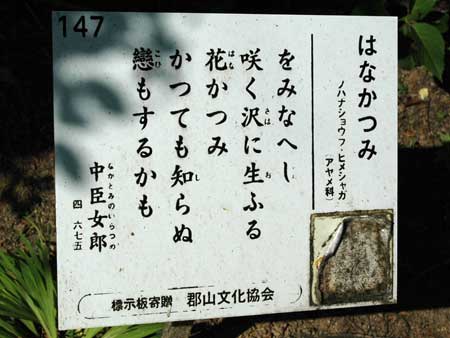 147
はなかつみ
ノハナショウブ・ヒメシャガ
(アヤメ科)
をみなへし
咲く沢に生ふる
花かつみ
かつても知らぬ
戀もするかも
中臣女郎
四 六七五
標示板寄贈 郡山文化協会